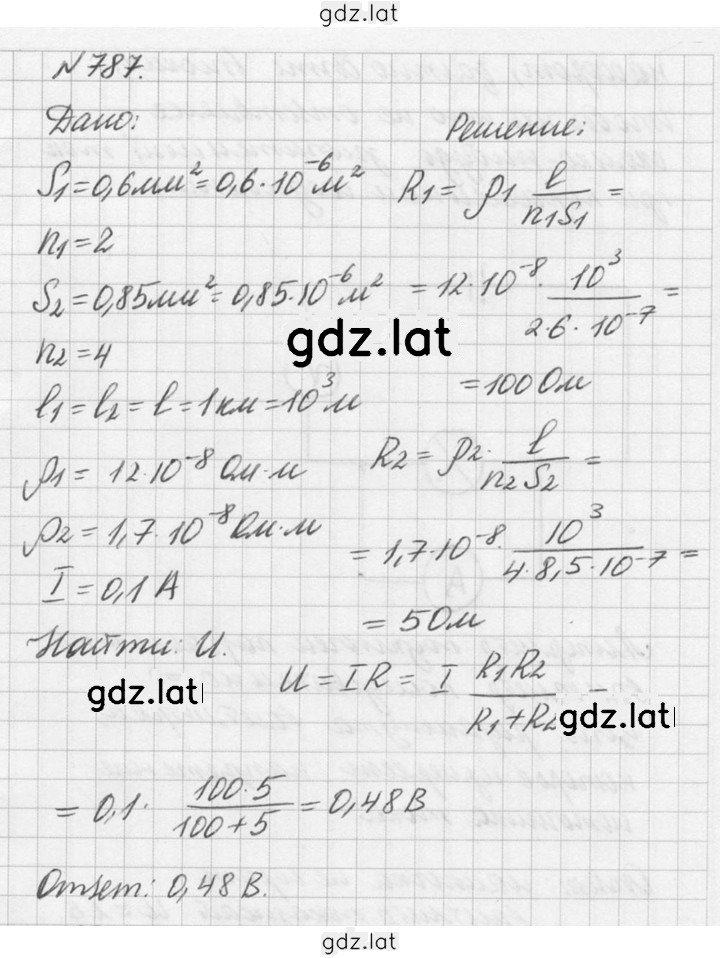 gdz.lat
№787.
Дано:
S₁=0,6мм²=0,6·10⁻⁶м²
n₁=2
S₂=0,85мм²=0,85·10⁻⁶м²
n₂=4
l₁=l₂=l=1км=10³м
ρ₁=12·10⁻⁸Ом·м
ρ₂=1,7·10⁻⁸Ом·м
I=0,1А
Найти: U.
Решение:
R₁=ρ₁ l/(n₁S₁)=
=12·10⁻⁸·10³/(2·6·10⁻⁷)=
gdz.lat
=100Ом
R₂=ρ₂·l/(n₂S₂)=
=1,7·10⁻⁸·10³/(4·8,5·10⁻⁷)=
=5Ом
gdz.lat
U=IR=I R₁R₂/(R₁+R₂)=
gdz.lat
=0,1·(100·5)/(100+5)=0,48В
Ответ: 0,48В.
gdz.lat